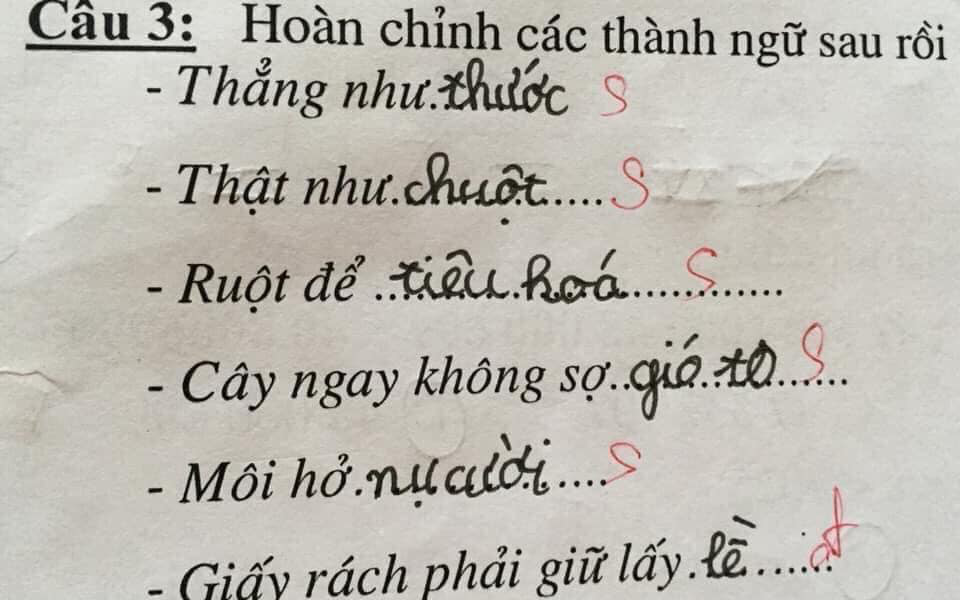 Câu 3: Hoàn chỉnh các thành ngữ sau rồi
- Thẳng như.thước S
- Thật như.chuột..... S
- Ruột để ..tiêu hoá............. S
- Cây ngay không sợ..gió to....... S
- Môi hở.nụ cười.... S
- Giấy rách phải giữ lấy.lề......